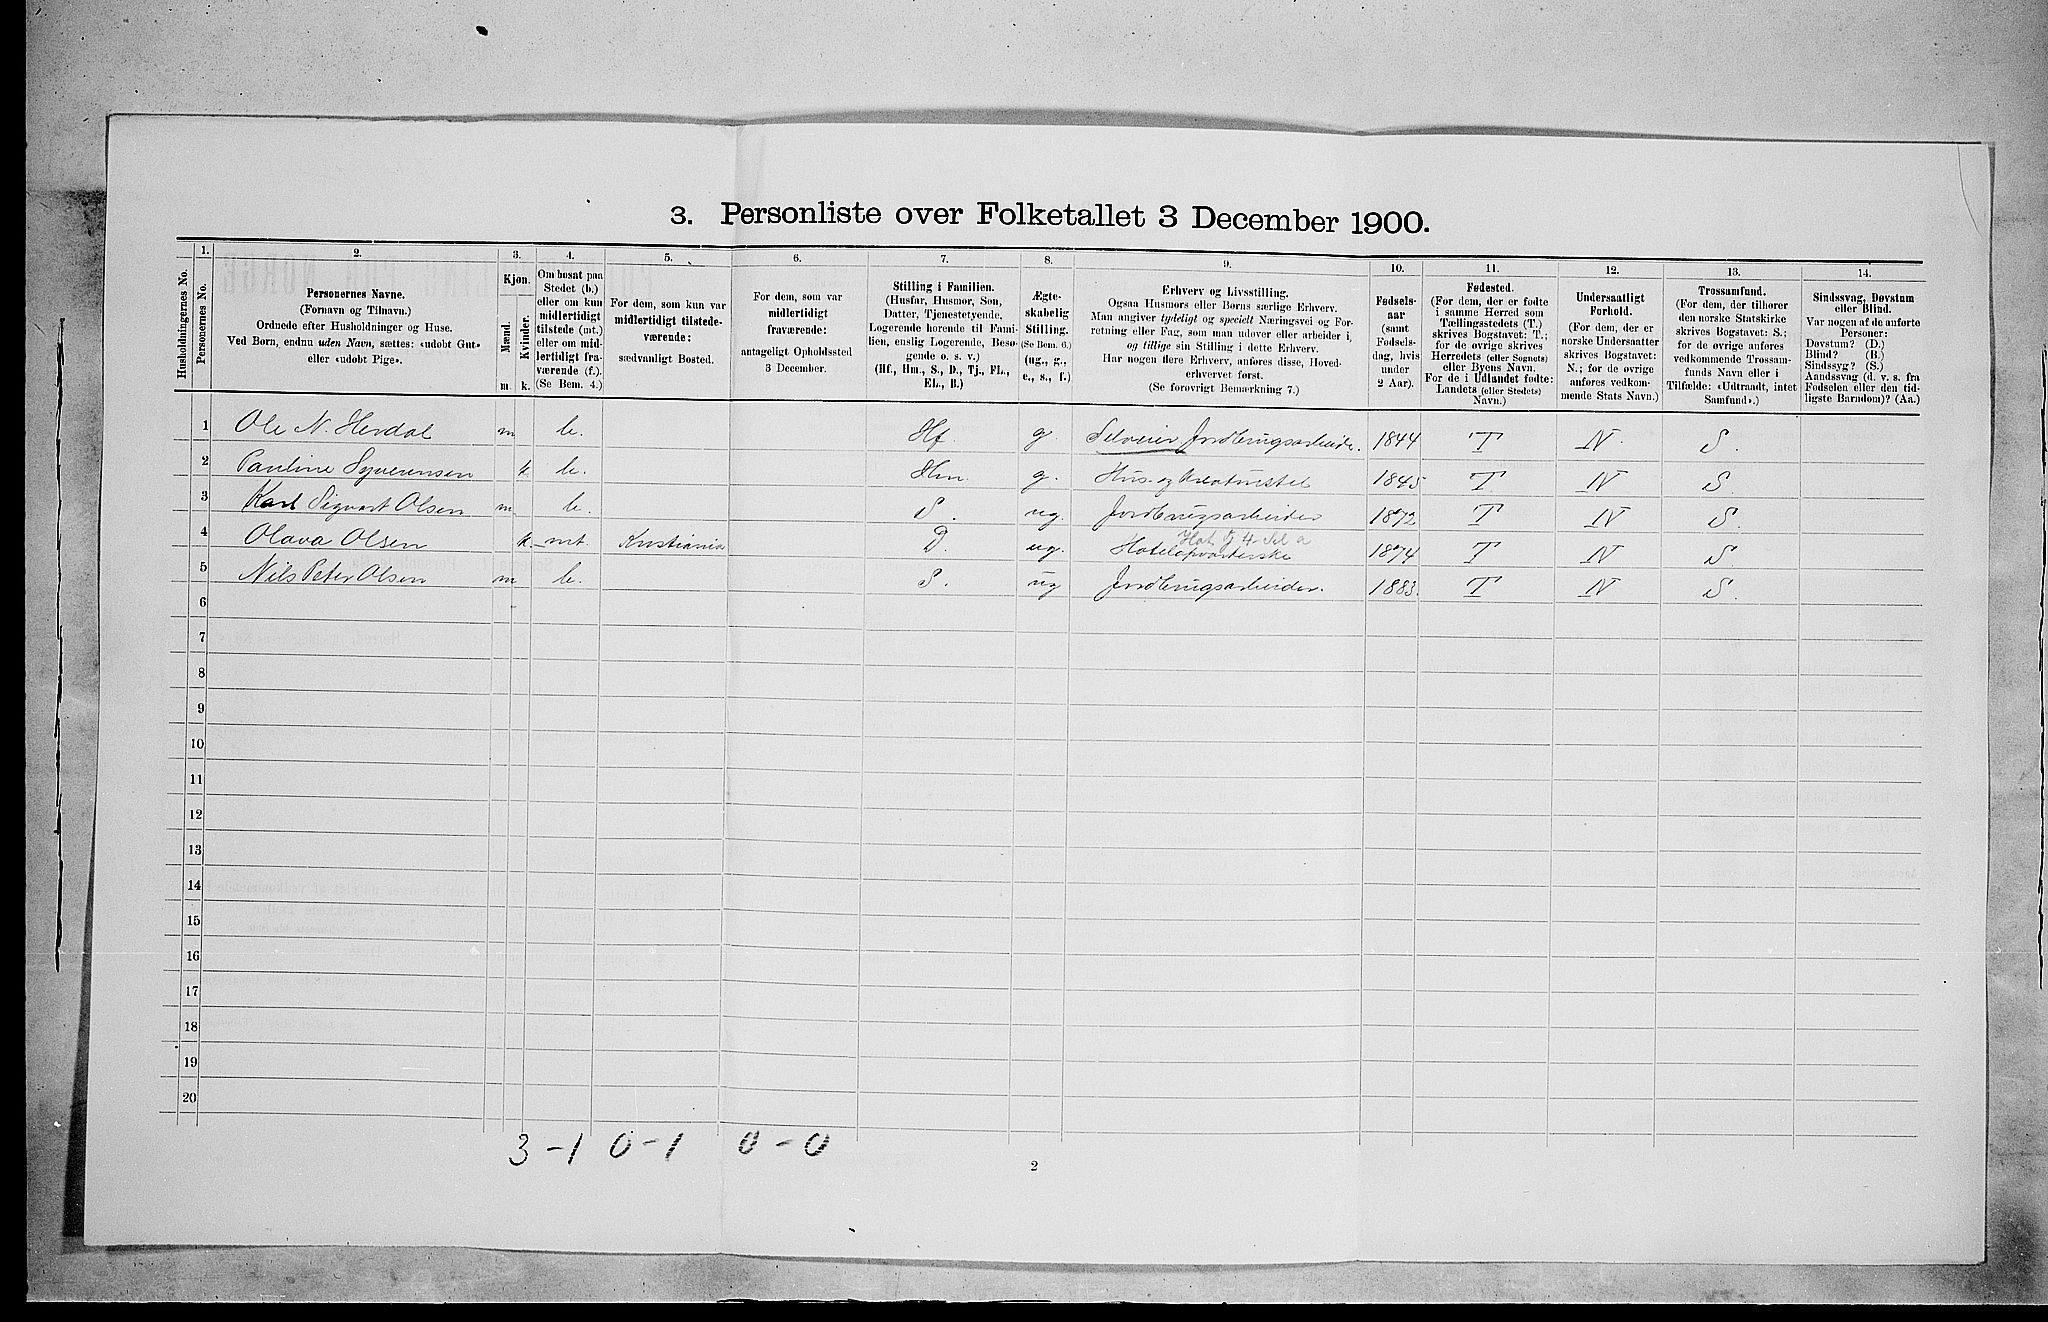 3. Personliste over Folketallet 3 December 1900.
Husholdningernes No.
1.
Personernes No.
2.
Personernes Navne.
(Fornavn og Tilnavn.)
Ordnede efter Husholdninger og Huse.
Ved Børn, endnu uden Navn, sættes: «udøbt Gut»
eller «udøbt Pige».
3.
Kjøn.
Mænd.
Kvinder.
m.
k.
4.
Om bosat paa
Stedet (b.)
eller om kun
midlertidigt
tilstede (mt.)
eller om mid-
lertidigt fra-
værende (f.).
(Se Bem. 4.)
5.
For dem, som kun var
midlertidigt tilstede-
værende:
sædvanligt Bosted.
6.
For dem, som var
midlertidigt
fraværende:
antageligt Opholdssted
3 December.
7.
Stilling i Familien.
(Husfar, Husmor, Søn,
Datter, Tjenestetyende,
Logerende hørende til Fami-
lien, enslig Logerende, Besø-
gende o. s. v.)
(Hf., Hm., S., D., Tj., FL.,
EL., B.)
8.
Ægte-
skabelig
Stilling.
(Se Bem. 6.)
(ug., g.,
e., s., f.)
9.
Erhverv og Livsstilling.
Ogsaa Husmors eller Børns særlige Erhverv.
Man angiver tydeligt og specielt Næringsvei og For-
retning eller Fag, som man udøver eller arbeider i,
og tillige sin Stilling i dette Erhverv.
Har nogen flere Erhverv, anføres disse, Hoved-
erhvervet først.
(Se forøvrigt Bemærkning 7.)
10.
Fødsels-
aar
(samt
Fødsels-
dag, hvis
under
2 Aar).
11.
Fødested.
(For dem, der er fødte
i samme Herred som
Tællingsstedets (T.)
skrives Bogstavet: T.;
for de øvrige skrives
Herredets (eller Sognets)
eller Byens Navn.
For de i Udlandet fødte:
Landets (eller Stedets)
Navn.)
12.
Undersaatligt
Forhold.
(For dem, der er
norske Undersaatter
skrives Bogstavet:
N.; for de øvrige
anføres vedkom-
mende Stats Navn.)
13.
Trossamfund.
(For dem, der tilhører
den norske Statskirke
skrives Bogstavet: S.;
for de øvrige anføres
vedkommende Trossam-
funds Navn eller i
Tilfælde: «Udtraadt, intet
Samfund».)
14.
Sindssvag, Døvstum
eller Blind.
Var nogen af de anførte
Personer:
Døvstum? (D.)
Blind? (B.)
Sindssyg? (S.)
Aandssvag (d. v. s. fra
Fødselen eller den tid-
ligste Barndom)? (Aa.)
1 Ole N. Herdal m b. Hf. g. Selveier Jordbrugsarbeider. 1844 T N. S.
2 Pauline Syverensen k. b. Hm. g. Hus- og Kreaturstel 1845 T. N S.
3 Karl Sigvart Olsen m. b. S. ug. Jordbrugsarbeider 1872 T N S.
Hot
4 Olava Olsen k. mt. Kristiania D. ug. Hotelopvarterske 1874 T N S.
5 Nils Peter Olsen m b. S. ug Jordbrugsarbeider. 1883. T N S.
6
7
8
9
10
11
12
13
14
15
16
17
18
19
20
3 - 1 0 - 1 0 - 0
2